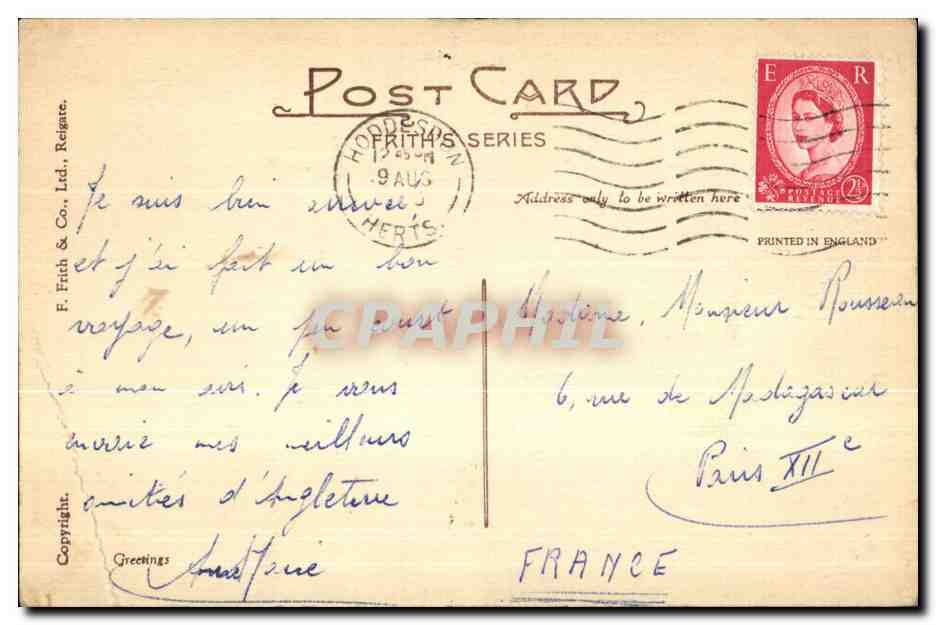 POST CARD
FRITH'S SERIES
HODDESDON
9 AUG
HERTS.
E R
POSTAGE
REVENUE
2½
Address only to be written here
PRINTED IN ENGLAND
F. Frith & Co., Ltd., Reigate.
Copyright.
Je suis bien arrivée
et j'ai fait un bon
voyage, un peu court
à mon avis. Je vous
envoie mes meilleurs
amitiés d'Angleterre
Greetings
CPAPHIL
Madame, Monsieur Rousseau
6, rue de Madagascar
Paris XIIe
FRANCE